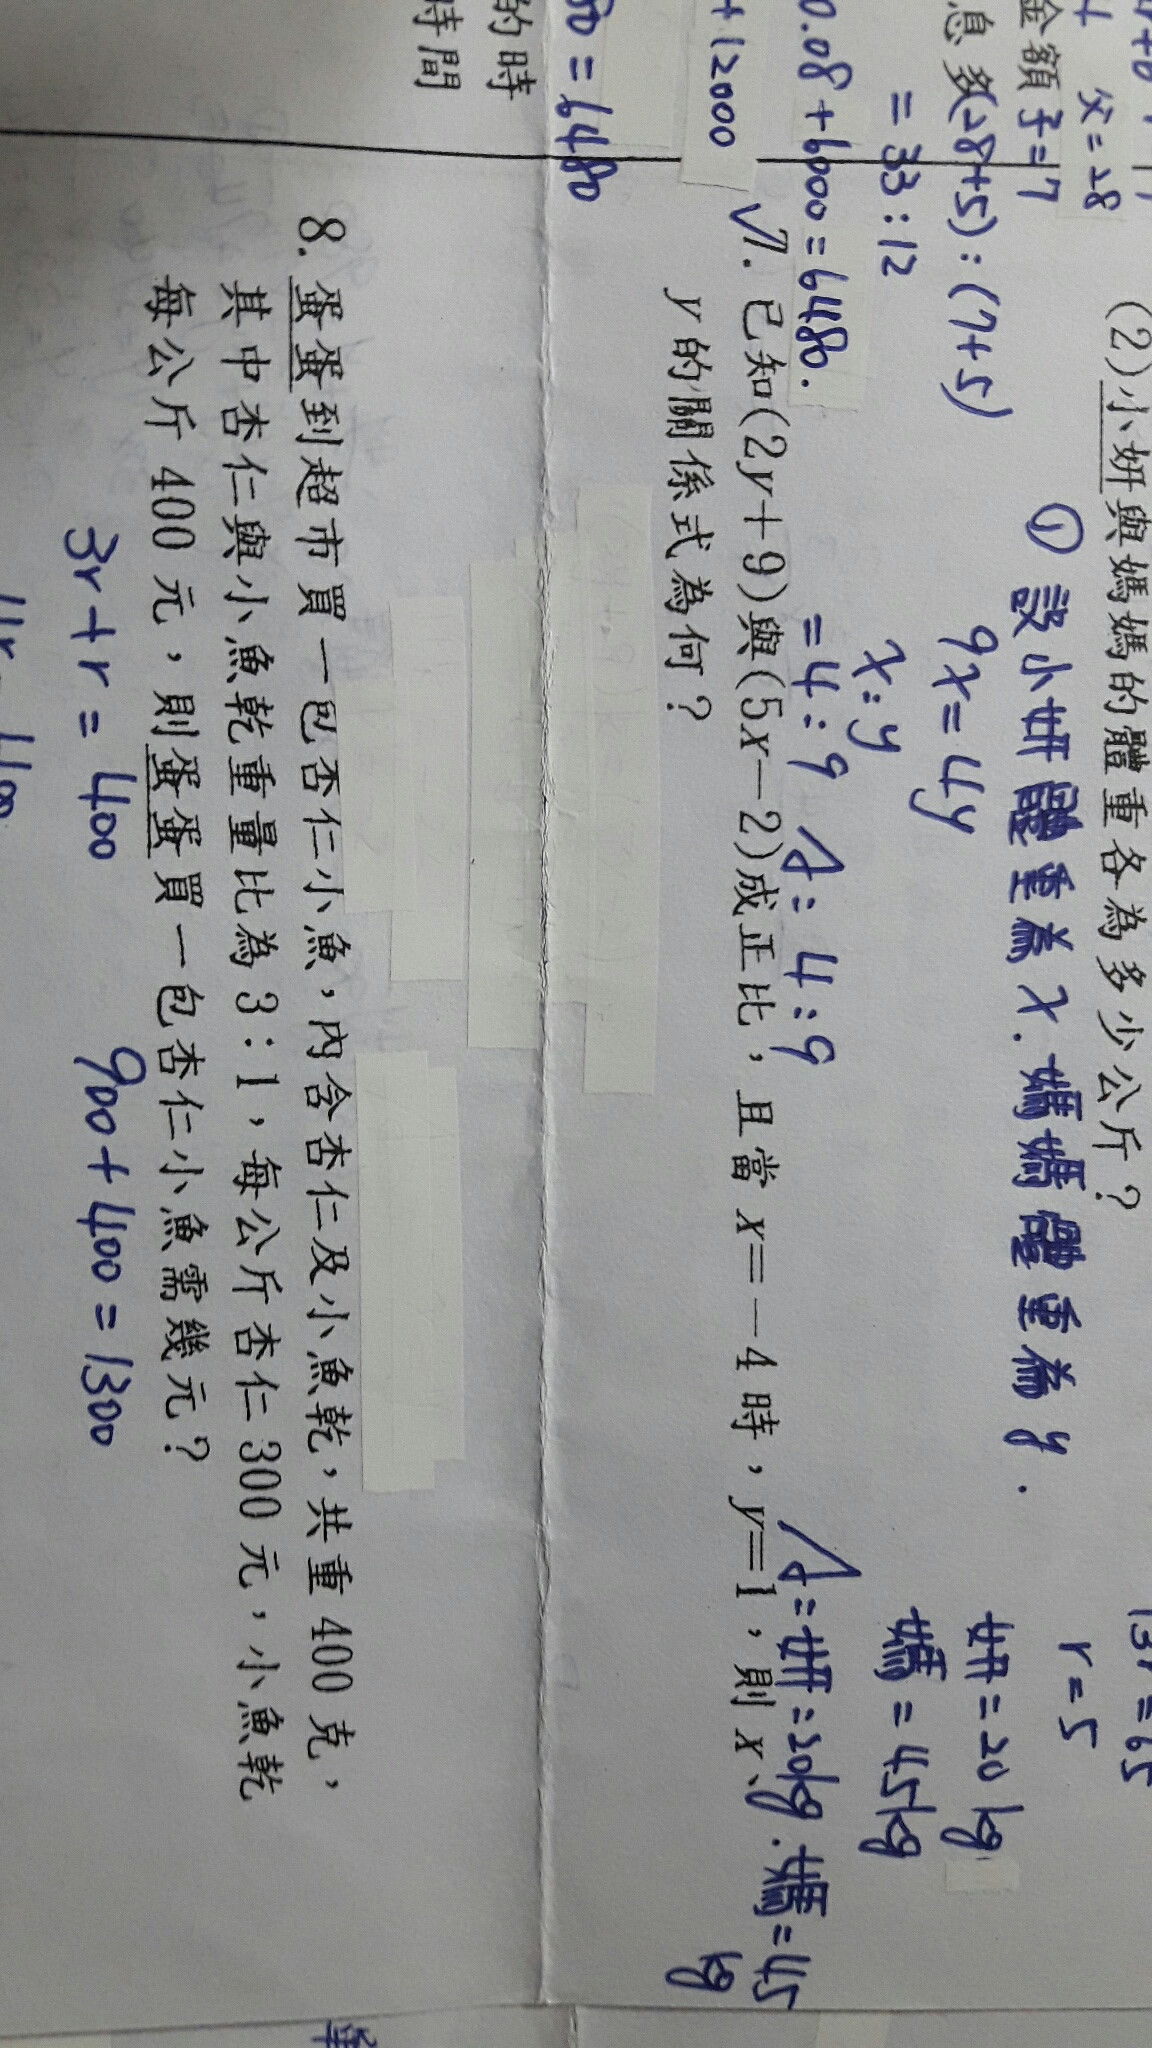 (2)小妍與媽媽的體重各為多少公斤?
① 設小妍體重為x.媽媽體重為y.
9x=4y
x:y
=4:9 A:4:9
13r=65
r=5
妍=20kg
媽=45kg
A=妍=20kg.媽=45
kg
父=28
金額子=17
息多(28+5):(7+5)
=33:12
0.08+6000=6480.
+12000
80=6480
的時
時間
7.已知(2y+9)與(5x-2)成正比,且當x=-4時,y=1,則x、
y的關係式為何?
8.蛋蛋到超市買一包杏仁小魚,內含杏仁及小魚乾,共重400克,
其中杏仁與小魚乾重量比為3:1,每公斤杏仁300元,小魚乾
每公斤400元,則蛋蛋買一包杏仁小魚需幾元?
3r+r=400
900+400=1300